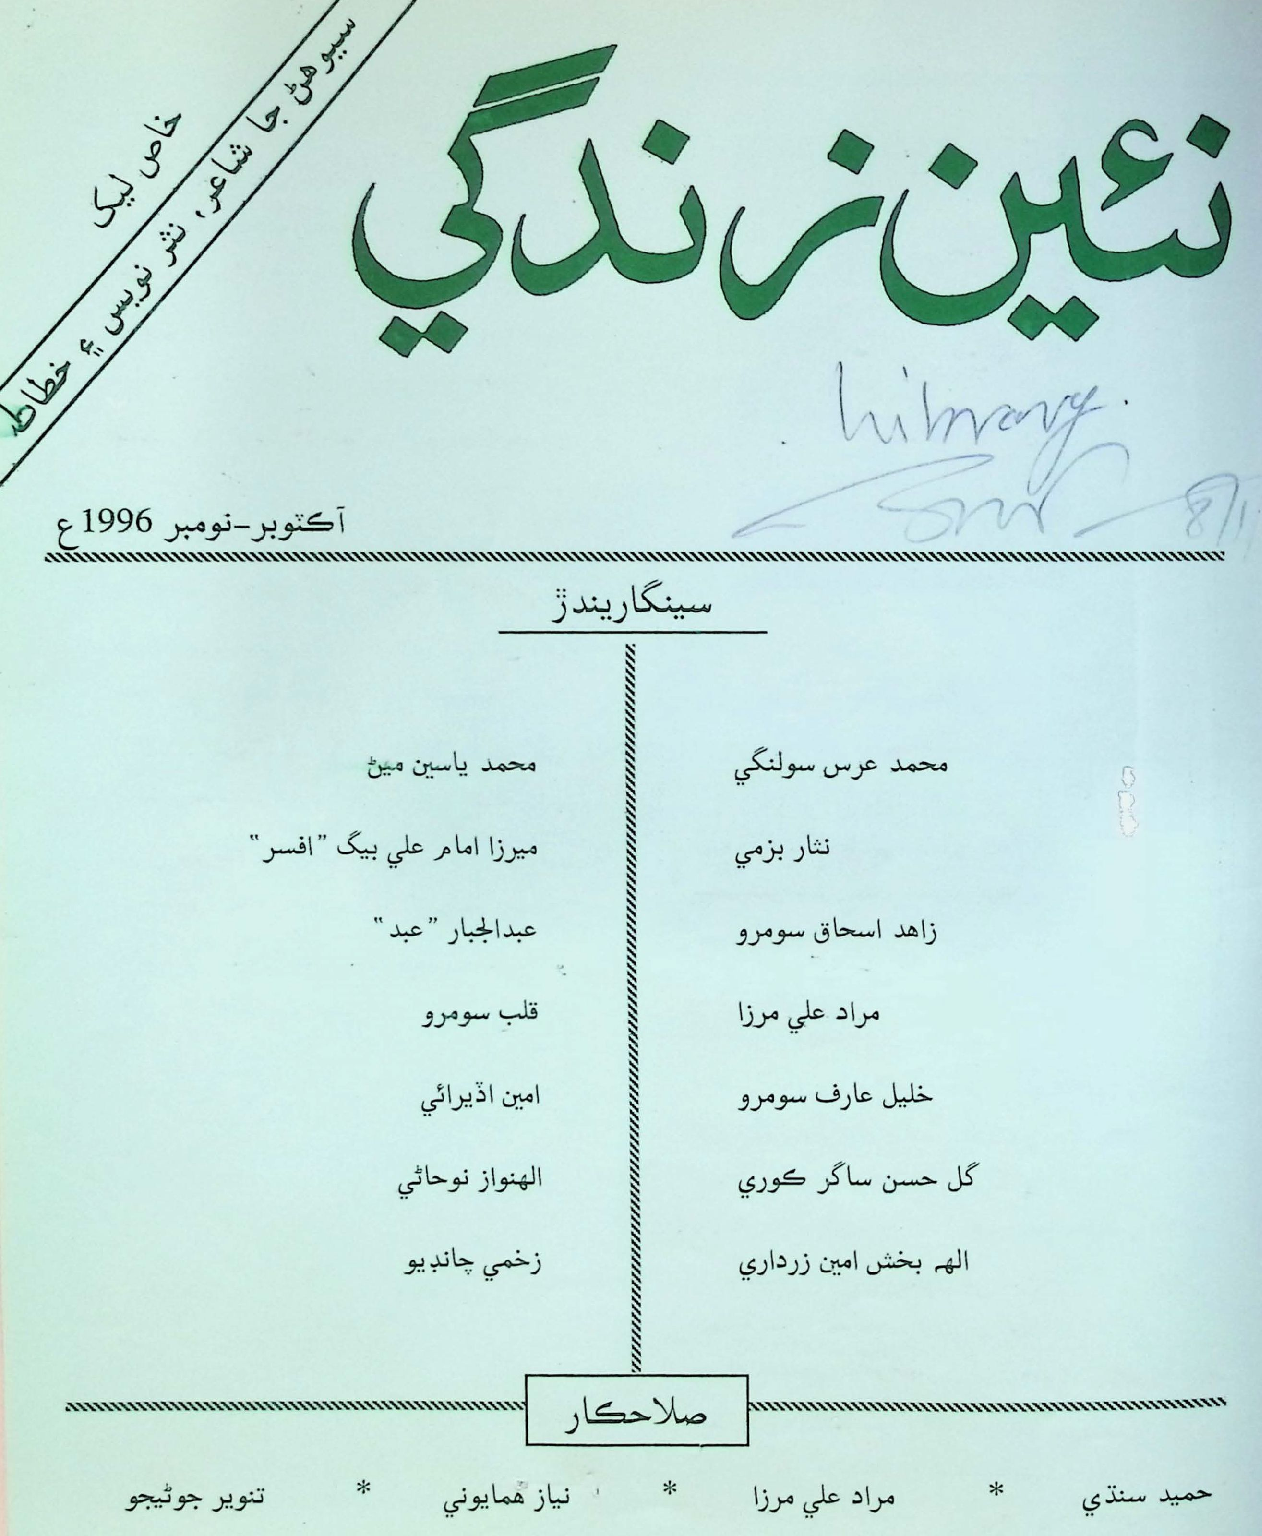 خاص ليک
سيوهڻ جا شاعر، نثر نويس ۽ خطاط
نئين زندگي
Library.
آڪٽوبر-نومبر 1996ع
سينگاريندڙ
محمد عرس سولنگي
نثار بزمي
زاهد اسحاق سومرو
مراد علي مرزا
خليل عارف سومرو
گل حسن ساگر ڪوري
الهہ بخش امين زرداري
محمد ياسين ميڻ
ميرزا امام علي بيگ ”افسر“
عبدالجبار ”عبد“
قلب سومرو
امين اڏيرائي
الهنواز نوحاڻي
زخمي چانڊيو
صلاحڪار
حميد سنڌي * مراد علي مرزا * نياز همايوني * تنوير جوڻيجو